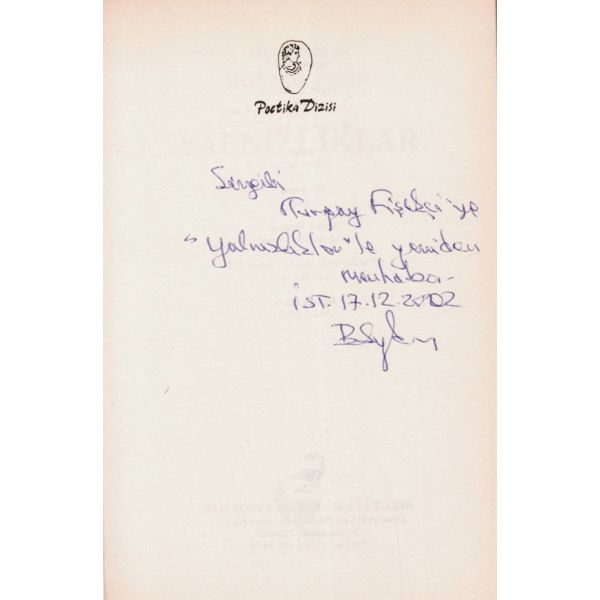 Poetika Dizisi
Sevgili
Turgay Fişekçi'ye
"Yalnızlıktan"la yeniden
merhaba-
İST. 17.12.2002